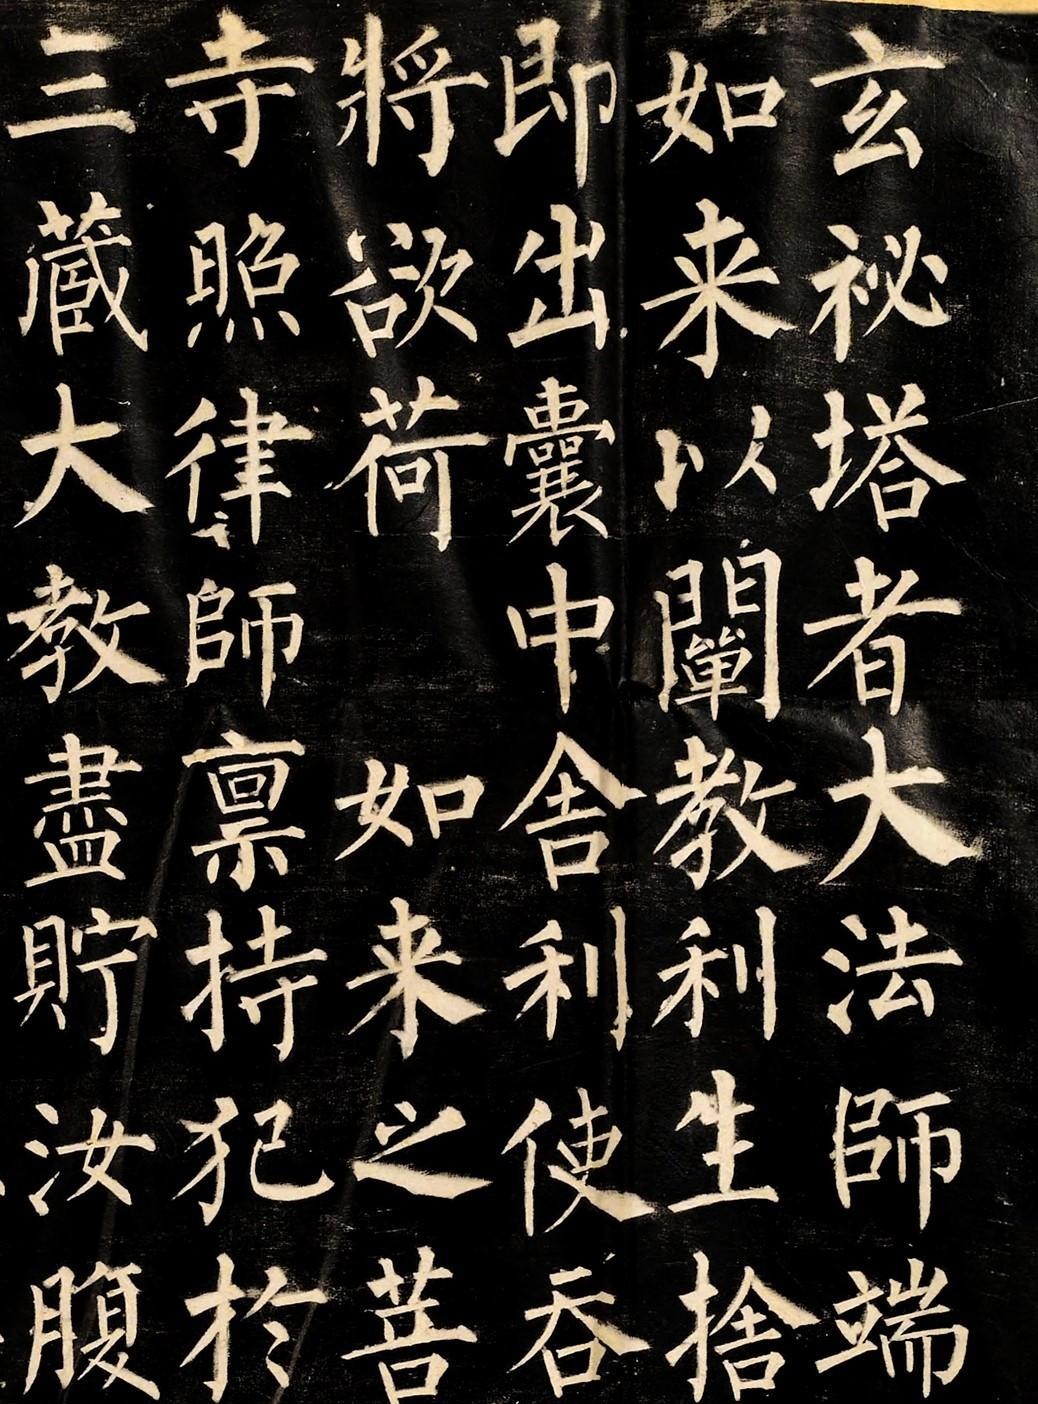 玄祕塔者大法師端
如来以闡教利生捨
即出囊中舍利使吞
將欲荷如来之菩
寺照律師禀持犯於
三蔵大教盡貯汝腹